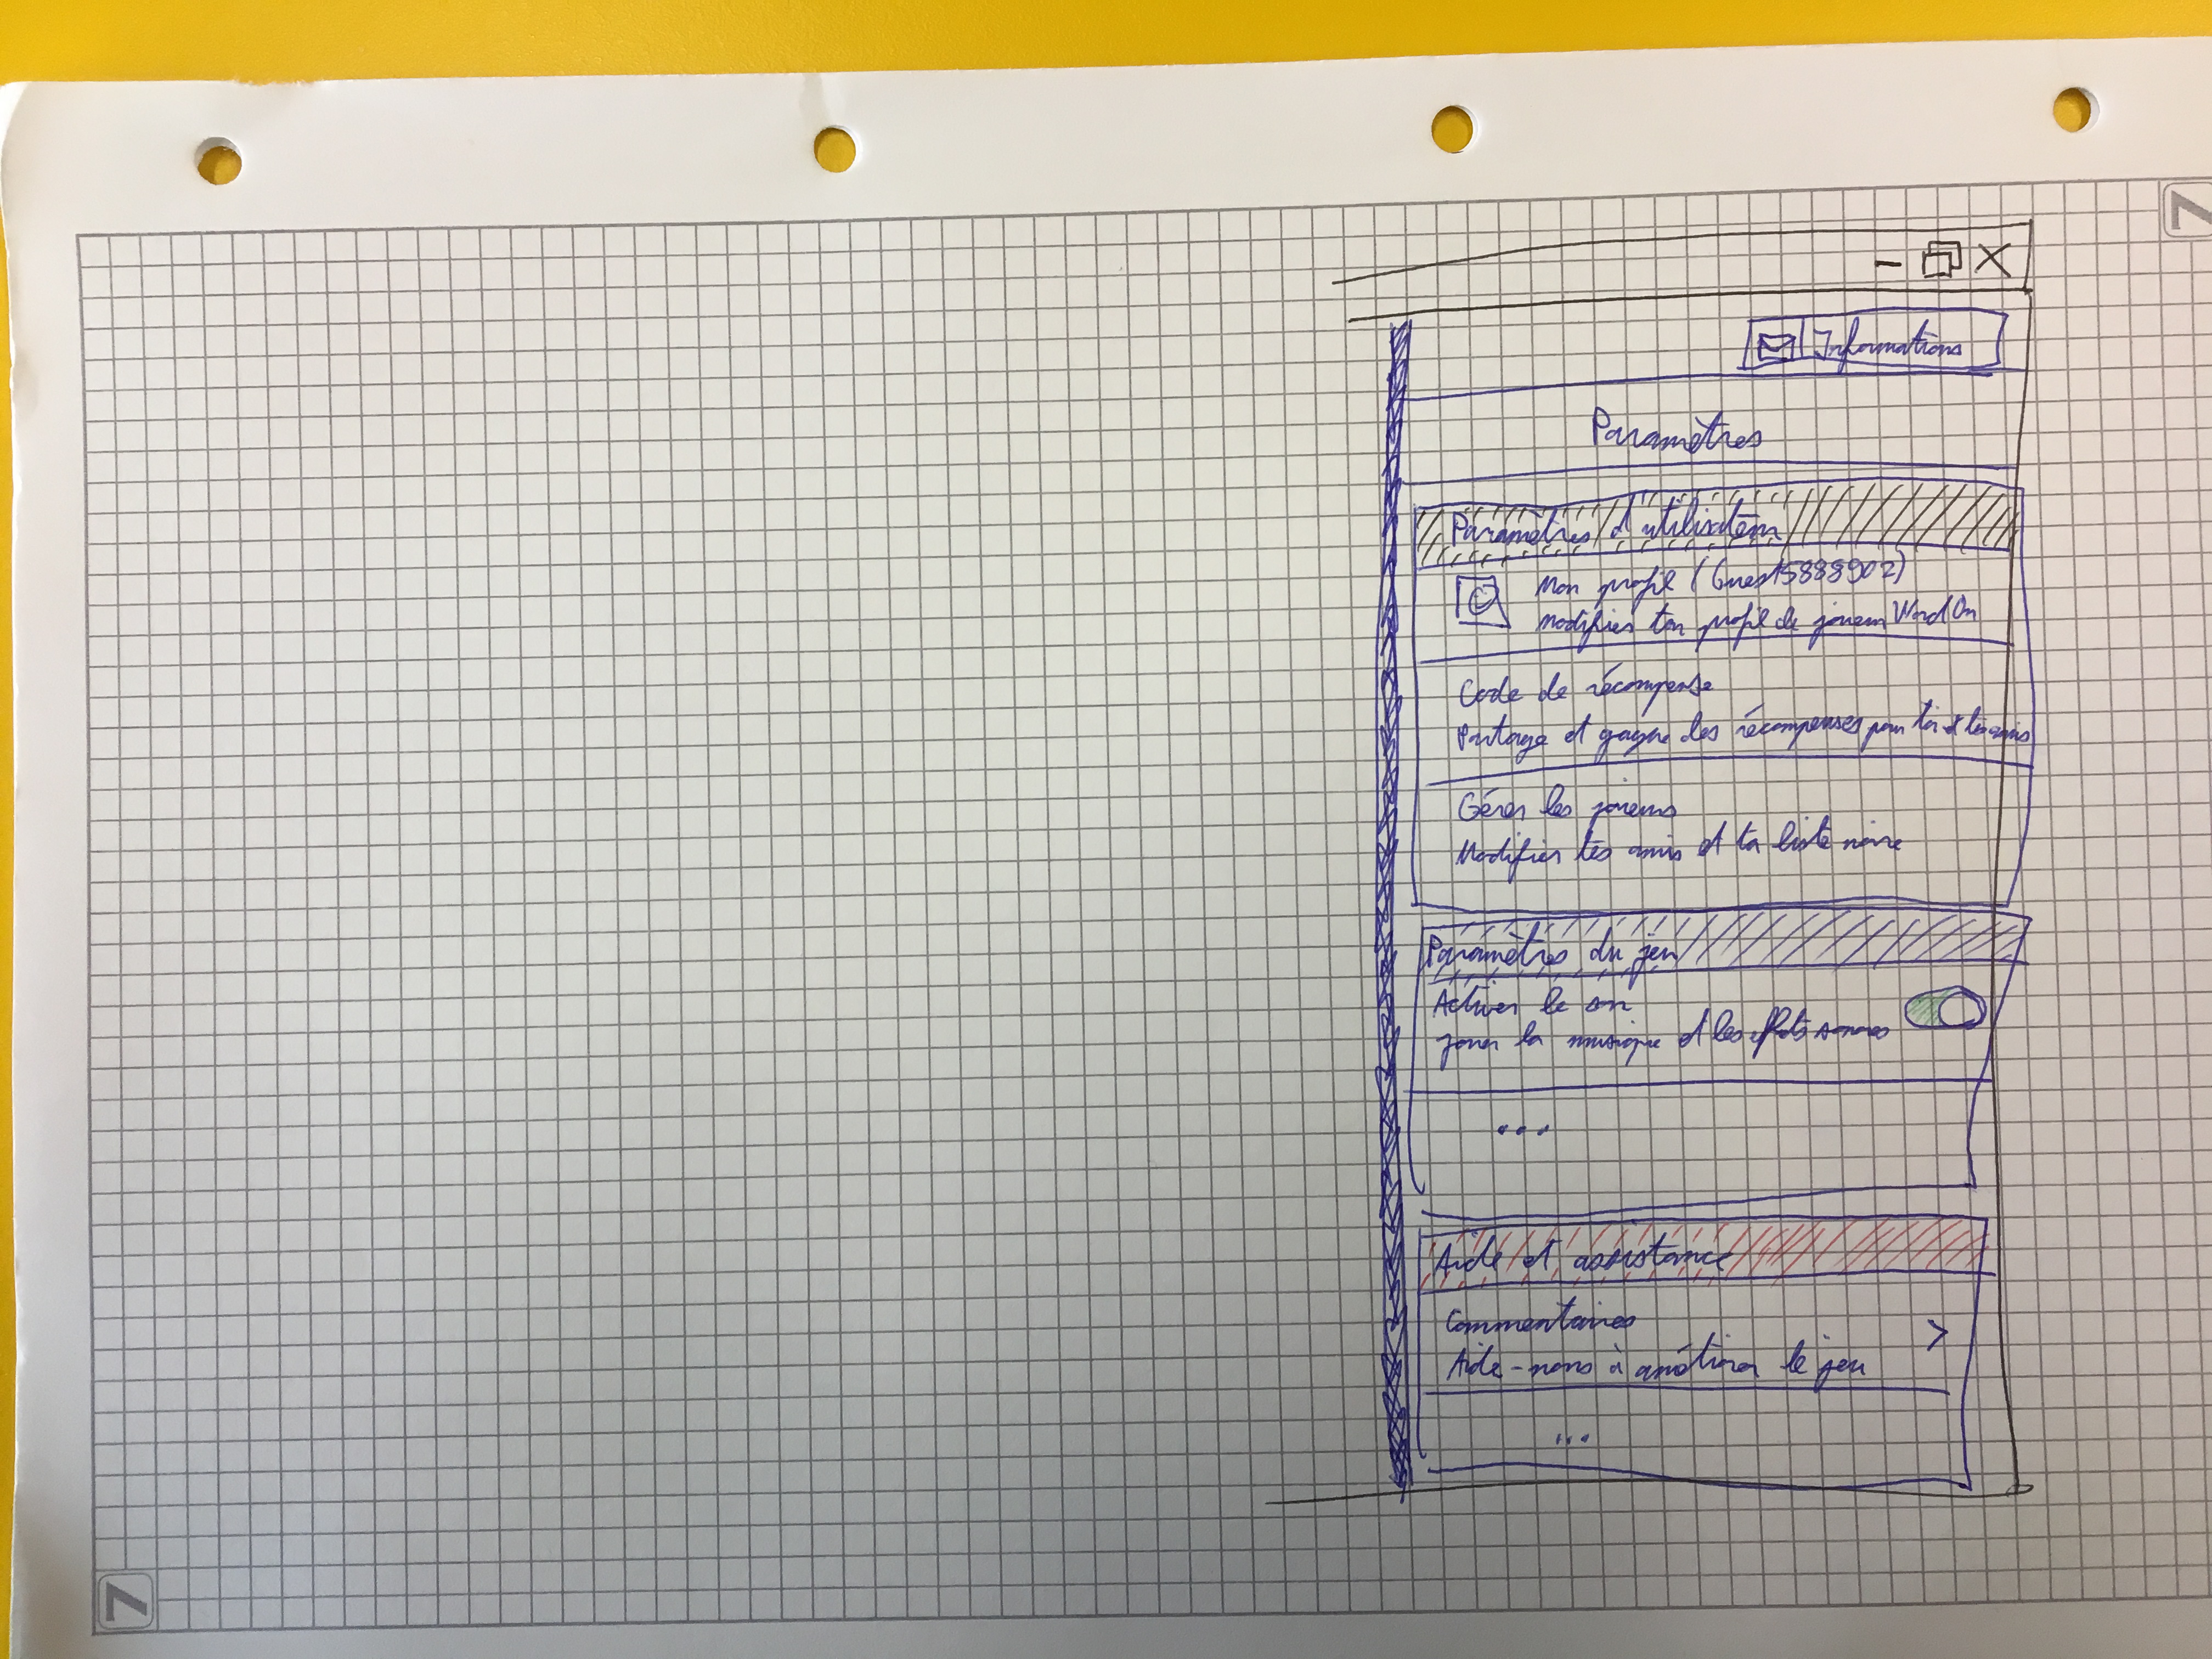 7
Informations
Paramètres
Paramètres d'utilisateur
Mon profil (Guest5888902)
Modifier ton profil de joueur WordOn
Code de récompense
Partage et gagne des récompenses pour toi et tes amis
Gérer les joueurs
Modifier tes amis et ta liste noire
Paramètres du jeu
Activer le son
Jouer la musique et les effets sonores
...
Aide et assistance
Commentaires
>
Aide-nous à améliorer le jeu
...
7